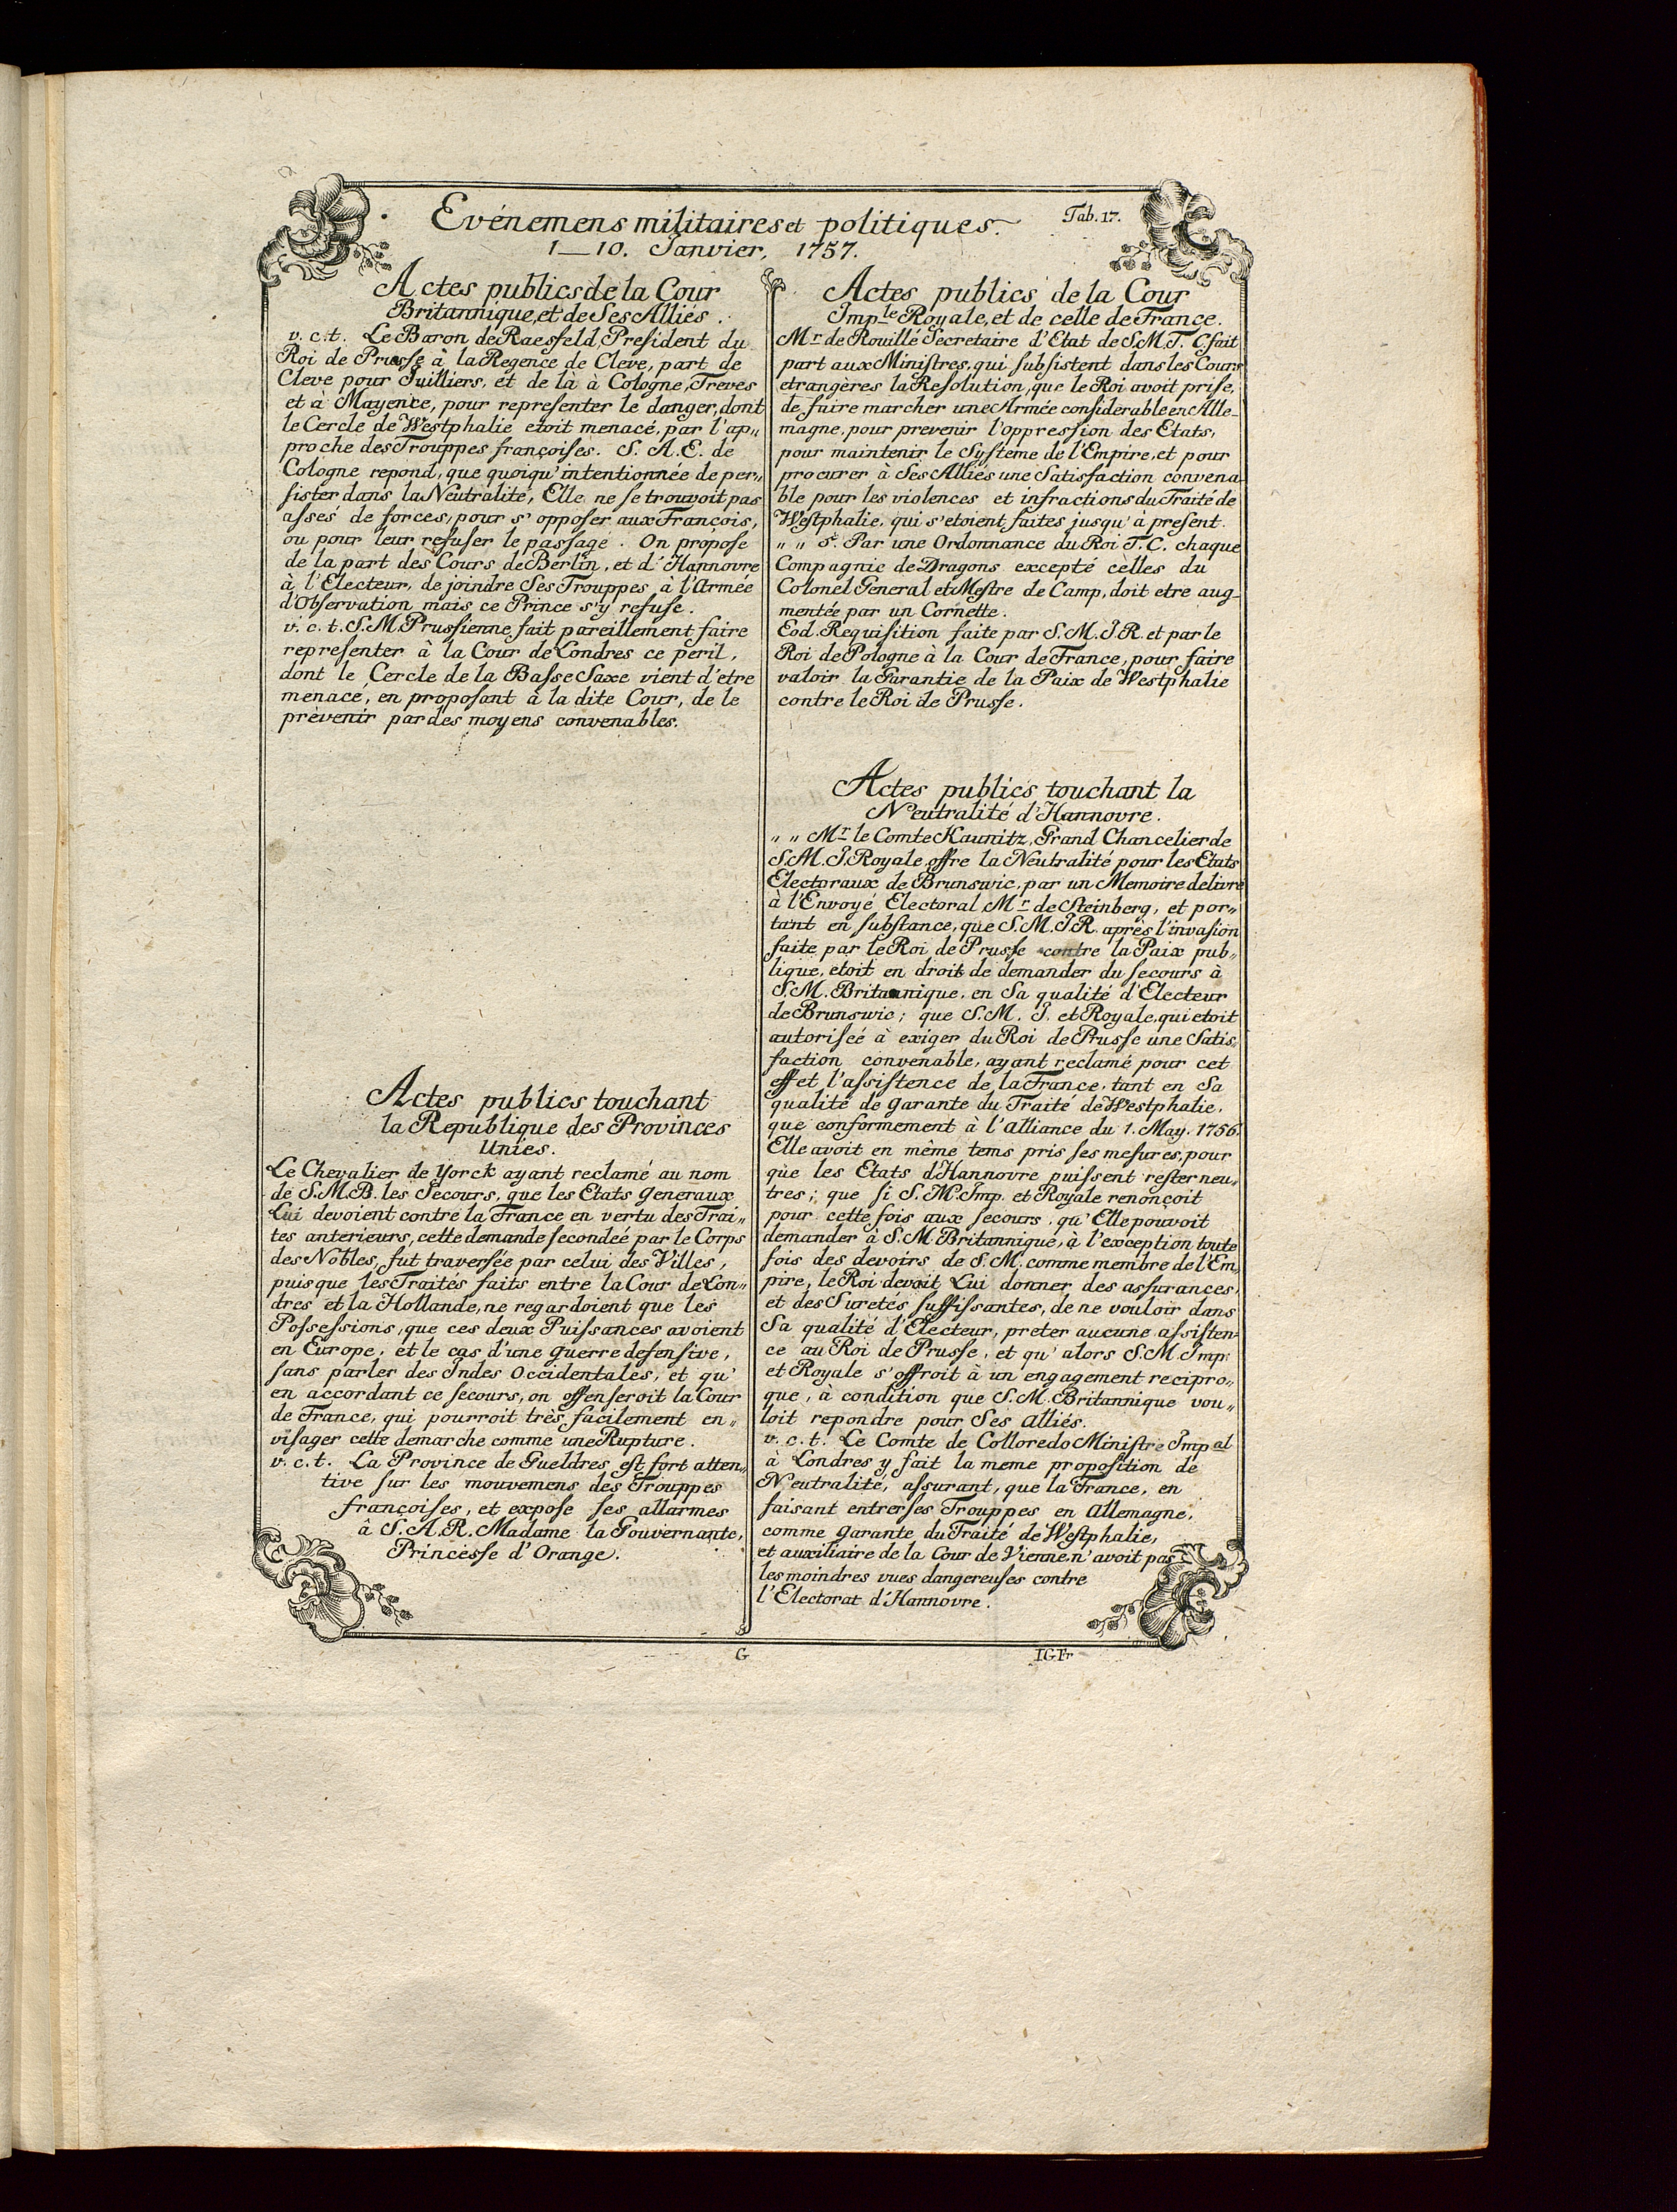 Evénemens militaires et politiques.
Tab. 17.
1—10. Janvier, 1757.
Actes publics de la Cour
Britannique, et de Ses Alliés.
v. c. t. Le Baron de Raesfeld, President du
Roi de Prusse à la Regence de Cleve, part de
Cleve pour Juilliers, et de là à Cologne, Treves
et à Mayence, pour representer le danger, dont
le Cercle de Westphalie etoit menacé, par l'ap„
proche des Trouppes françoises. S. A. E. de
Cologne repond, que quoiqu'intentionnée de per„
sister dans la Neutralité, Elle ne se trouvoit pas
assés de forces, pour s'opposer aux François,
ou pour leur refuser le passage. On propose
de la part des Cours de Berlin, et d'Hannovre
à l'Electeur, de joindre Ses Trouppes à l'Armée
d'Observation mais ce Prince s'y refuse.
v. c. t. S. M. Prussienne fait pareillement faire
representer à la Cour de Londres ce peril,
dont le Cercle de la Basse Saxe vient d'etre
menacé, en proposant à la dite Cour, de le
prévenir par des moyens convenables.
Actes publics touchant
la Republique des Provinces
Unies.
Le Chevalier de Yorck ayant reclamé au nom
de S. M. B. les Secours, que les Etats Generaux
Lui devoient contre la France en vertu des Trai„
tes anterieurs, cette demande secondeé par le Corps
des Nobles, fut traversée par celui des Villes,
puis que les Traités faits entre la Cour de Lon„
dres et la Hollande, ne regardoient que les
Possessions, que ces deux Puissances avoient
en Europe, et le cas d'une guerre defensive,
sans parler des Indes Occidentales, et qu'
en accordant ce secours, on offenseroit la Cour
de France, qui pourroit très facilement en„
visager cette demarche comme une Rupture.
v. c. t. La Province de Gueldres est fort atten„
tive sur les mouvemens des Trouppes
françoises, et expose ses allarmes
â S. A. R. Madame la Gouvernante,
Princesse d'Orange.
Actes publics de la Cour
Imp.le Royale, et de celle de France.
Mr. de Rouillé Secretaire d'Etat de S. M. T. C. fait
part aux Ministres, qui subsistent dans les Cours
etrangères la Resolution, que le Roi avoit prise,
de faire marcher une Armée considerable en Alle-
magne, pour prevenir l'oppression des Etats,
pour maintenir le Systeme de l'Empire, et pour
procurer à Ses Alliés une Satisfaction convena-
ble pour les violences et infractions du Traité de
Westphalie, qui s'etoient faites jusqu'à present.
„ „ 5e. Par une Ordonnance du Roi T. C. chaque
Compagnie de Dragons excepté cèlles du
Colonel General et Mestre de Camp, doit etre aug-
mentée par un Cornette.
Eod. Requisition faite par S. M. I. R. et par le
Roi de Pologne à la Cour de France, pour faire
valoir la Garantie de la Paix de Westphalie
contre le Roi de Prusse.
Actes publics touchant la
Neutralité d'Hannovre.
„ „ Mr. le Comte Kaunitz, Grand Chancelier de
S. M. I. Royale offre la Neutralité pour les Etats
Electoraux de Brunswic, par un Memoire delivré
à l'Envoyé Electoral Mr. de Steinberg, et por„
tant en substance, que S. M. I. R. après l'invasion
faite par le Roi de Prusse contre la Paix pub„
lique, etoit en droit de demander du secours à
S. M. Britannique, en Sa qualité d'Electeur
de Brunswic; que S. M. I. et Royale, qui etoit
autoriseé à exiger du Roi de Prusse une Satis„
faction convenable, ayant reclamé pour cet
effet l'assistence de la France, tant en Sa
qualité de garante du Traité de Westphalie,
que conformement à l'alliance du 1. May. 1756.
Elle avoit en même tems pris ses mesures, pour
que les Etats d'Hannovre puissent rester neu„
tres; que si S. M. Imp. et Royale renonçoit
pour cette fois aux secours, qu'Elle pouvoit
demander à S. M. Britannique, à l'exception toute
fois des devoirs de S. M. comme membre de l'Em„
pire, le Roi devoit Lui donner des assurances,
et des Suretés suffissantes, de ne vouloir dans
Sa qualité d'Electeur, preter aucune assisten-
ce au Roi de Prusse, et qu'alors S. M. Imp.
et Royale s'offroit à un engagement recipro„
que, à condition que S. M. Britannique vou„
loit repondre pour Ses alliés.
v. c. t. Le Comte de Colloredo Ministre Impal
à Londres y fait la meme proposition de
Neutralité, assurant, que la France, en
faisant entrer ses Trouppes en Allemagne,
comme garante du Traité de Westphalie,
et auxiliaire de la Cour de Vienne n'avoit pas
les moindres vues dangereuses contre
l'Electorat d'Hannovre.
G
I.G.Fr